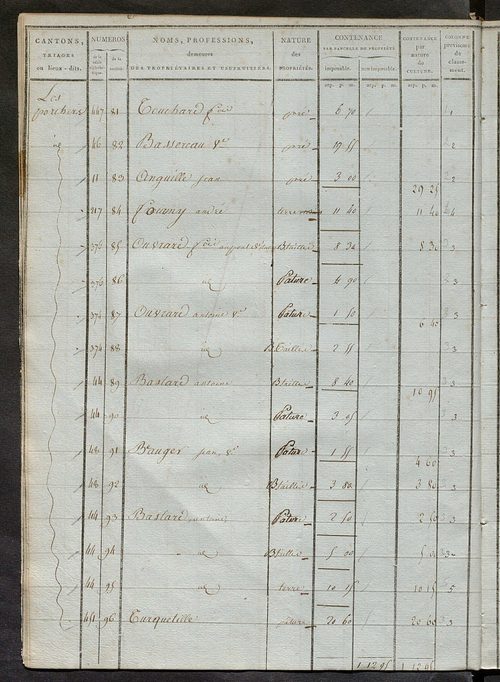 CANTONS, TRIAGES ou lieux-dits. NUMÉROS NOMS, PROFESSIONS, demeures DES PROPRIÉTAIRES ET USUFRUITIERS. NATURE des PROPRIÉTÉS. CONTENANCE PAR PARCELLE DE PROPRIÉTÉ imposable. non imposable. CONTENANCE par nature de CULTURE. COLONNE provisoire de classement.
arp. p. m. arp. p. m. arp. p. m.
Les
porchers 447 81 Touchard pré 6 70 1
46 82 Bassereau Ve pré 19 55 2
11 83 Anguille jean pré 3 00 29 25 2
317 84 Tourny andré terre 11 40 11 40 4
376 85 Ouvrard Btaillis 8 30 8 30 3
376 86 id Pature 4 90 3
374 87 Ouvrard antoine Ve Pature 1 50 6 40 3
374 88 id B Taillis 2 55 3
44 89 Bastard antoine Btaillis 8 40 10 95 3
44 90 id Pature 3 05 3
48 91 Bauger jean, Ve Pature 1 55 4 60 3
48 92 id Btaillis 3 80 3 80 3
44 93 Bastard antoine Pature 2 50 2 50 3
44 94 id Btaillis 5 00 5 00 3
44 95 id terre 10 15 10 15 5
451 96 Turquetille pature 20 60 20 60 3
1 12 95 1 12 95